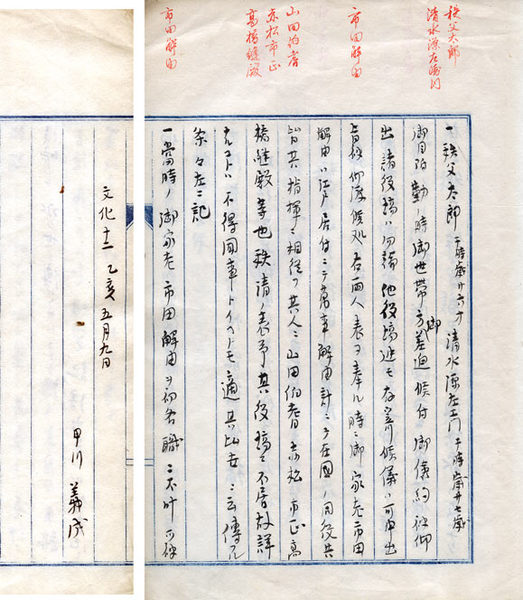 秩父太郎
清水源左衛門
市田解由
山田伯耆
赤松市正
高橋縫殿
市田解由
一 秩父太郎 干時歳廿六才 清水源左エ門 干時歳廿七歳
御目附勤ノ時御世帯方差迫候付御儉約被仰
出諸役場ハ勿論他役場迄モ存寄候儀ハ可申出
旨被仰渡候処右両人表ヲ奉ル時ニ御家老市田
解由ハ江戸居付ニテ萬事解由計ニテ在國ノ同役共
皆其指揮ニ相従フ其人ニハ山田伯耆赤松市正高
橋縫殿等也秩清ノ表予其役場ニ不居故詳
ナルコトハ不得 トイヘトモ適其比世ニ云傳ル
条々左ニ記
一 當時ノ御家老市田解由ヲ初各職ニ不叶可被
文化十二乙亥五月九日
甲川義成